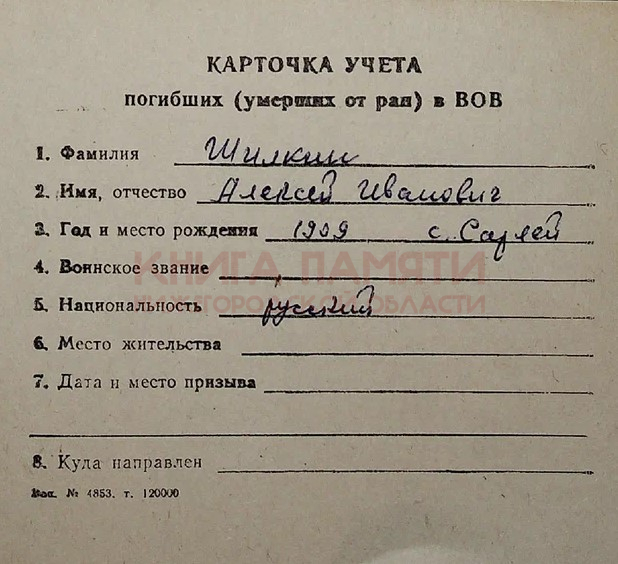 КАРТОЧКА УЧЕТА
погибших (умерших от ран) в ВОВ
1. Фамилия Шилкин
2. Имя, отчество Алексей Иванович
3. Год и место рождения 1909 с. Сарлей
КНИГА ПАМЯТИ
4. Воинское звание
НИЖЕГОРОДСКОЙ ОБЛАСТИ
5. Национальность русский
6. Место жительства
7. Дата и место призыва
8. Куда направлен
Зак. № 4853. т. 120000